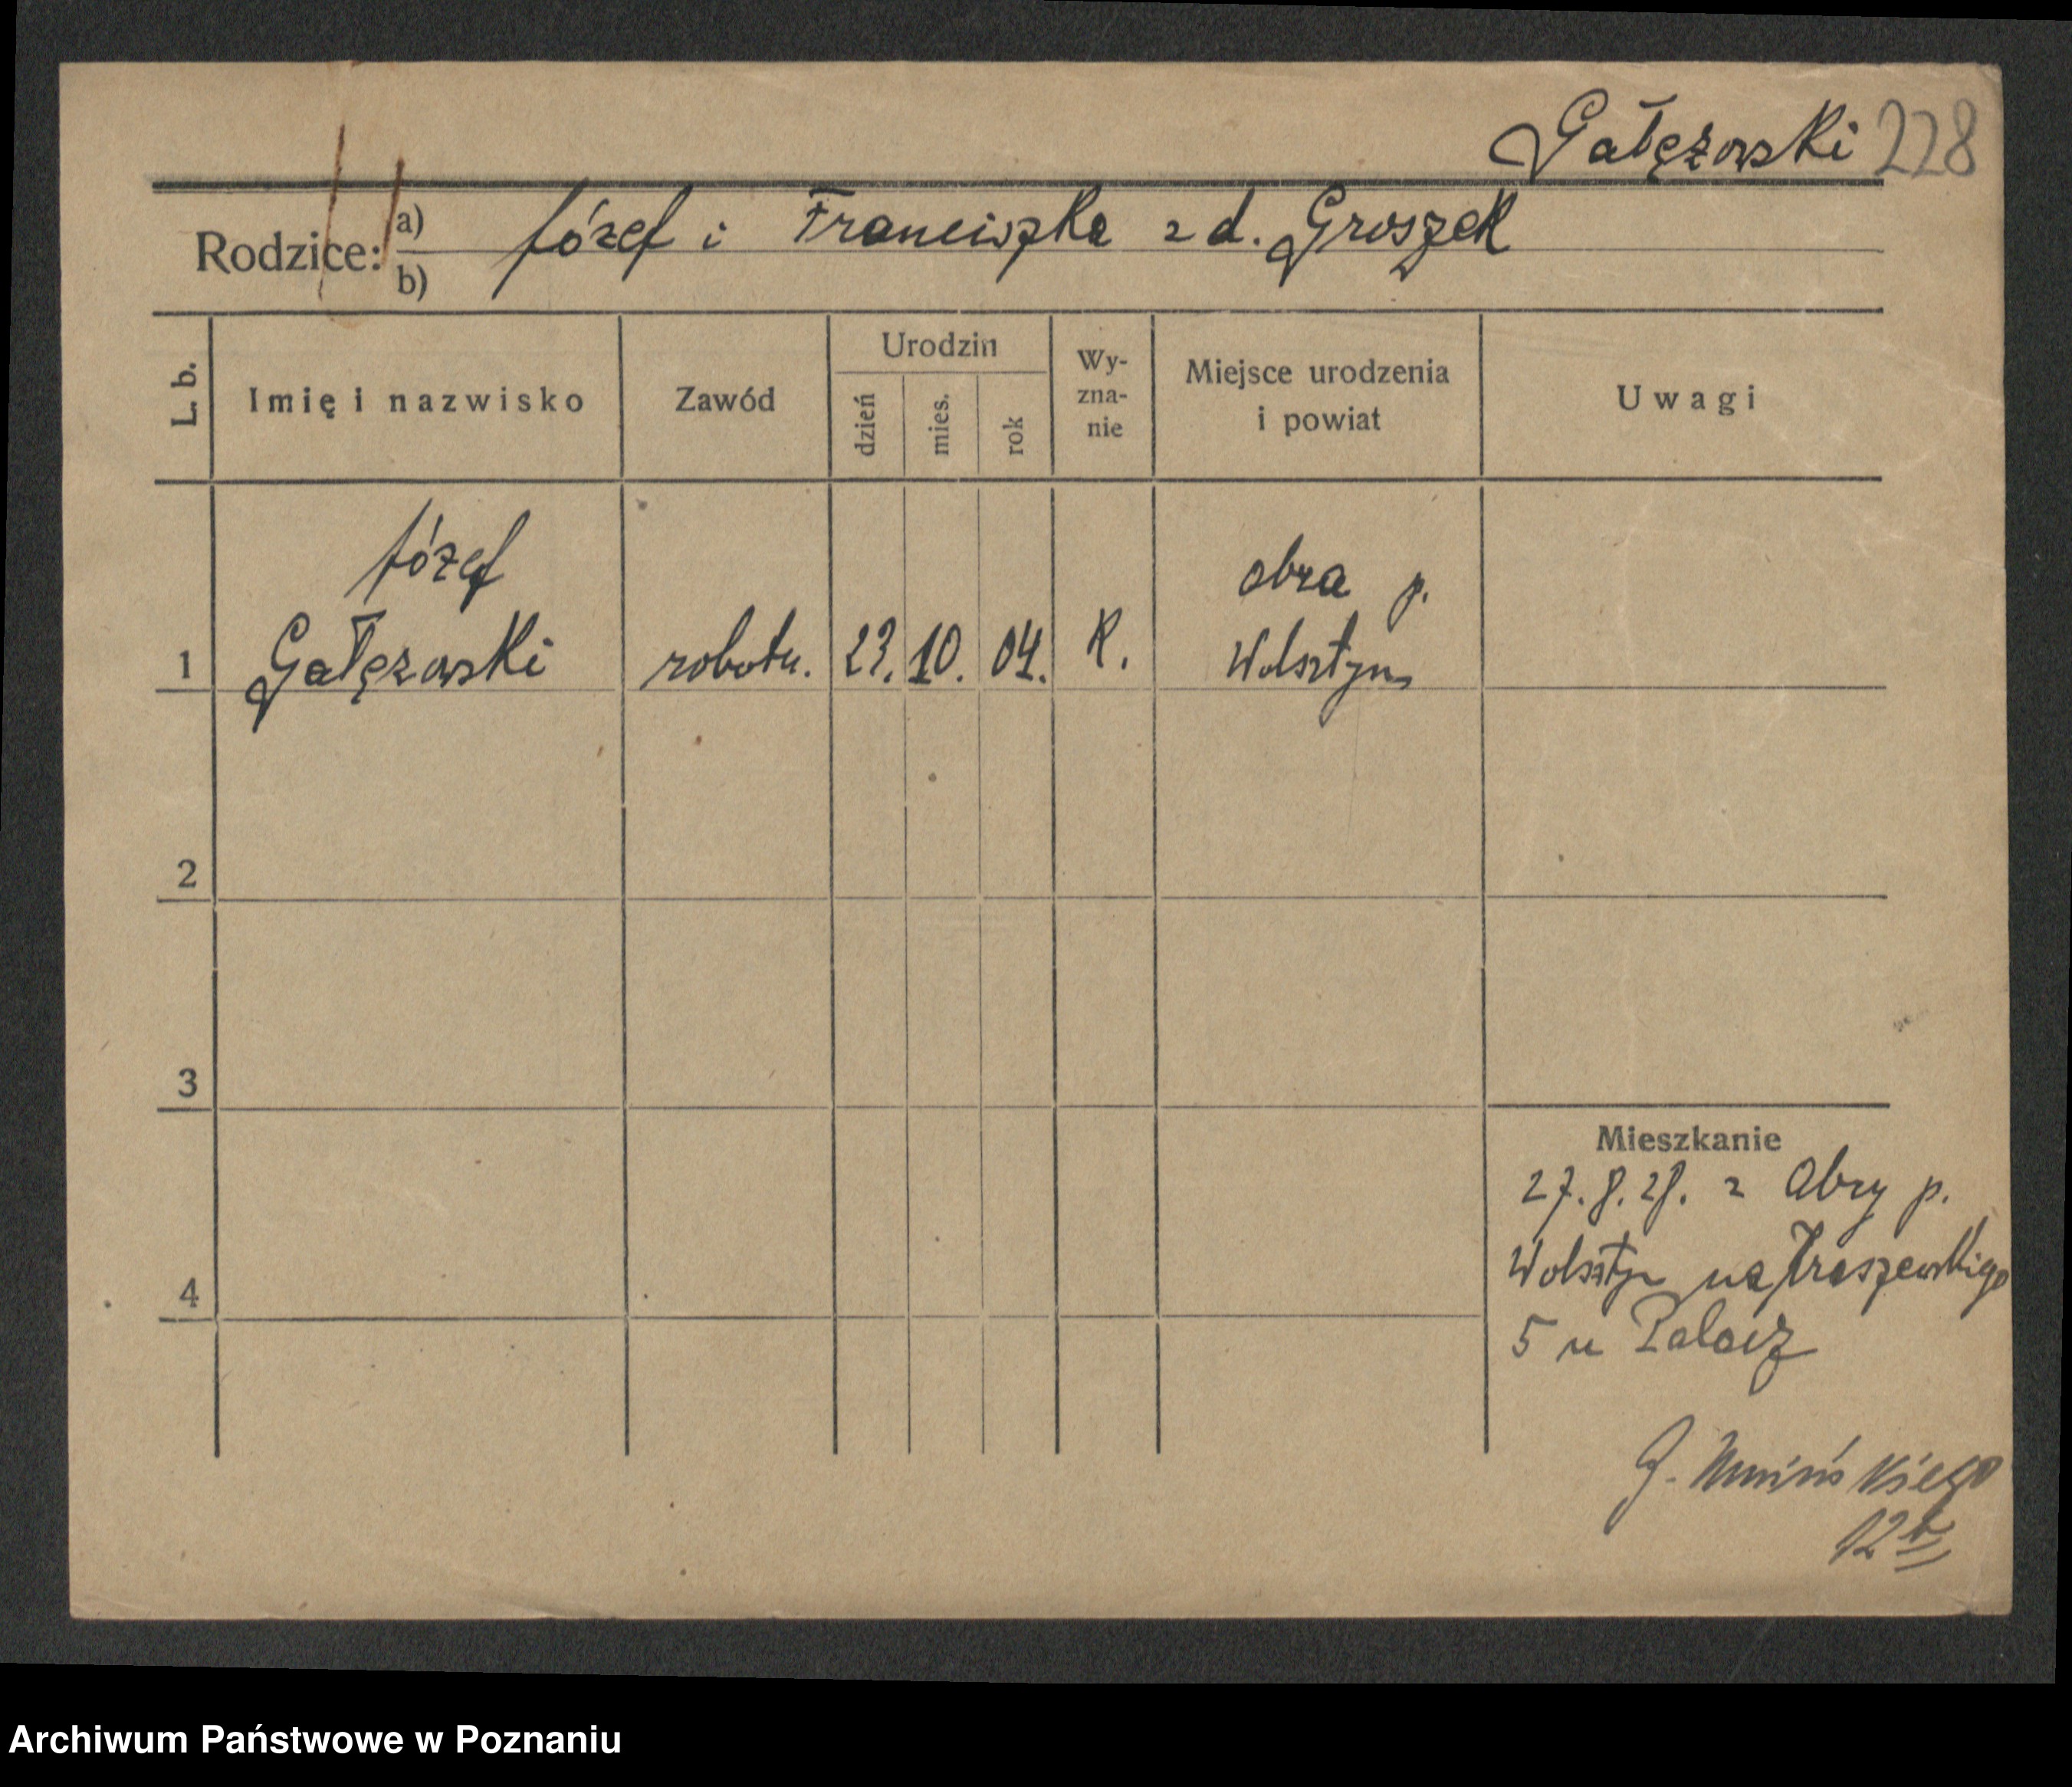 Gałęzowski 228
Rodzice: a) Józef i Franciszka z d. Groszek
b)
L. b. Imię i nazwisko Zawód Urodzin dzień mies. rok Wy-zna-nie Miejsce urodzenia i powiat Uwagi
Józef obra p.
1 Gałęzowski robotn. 23. 10. 04. K. Wolsztyn
2
3
Mieszkanie
27.8.28. z Obry p.
4 Wolsztyn na Kraszewskigo
5 u Palacz
12
Archiwum Państwowe w Poznaniu